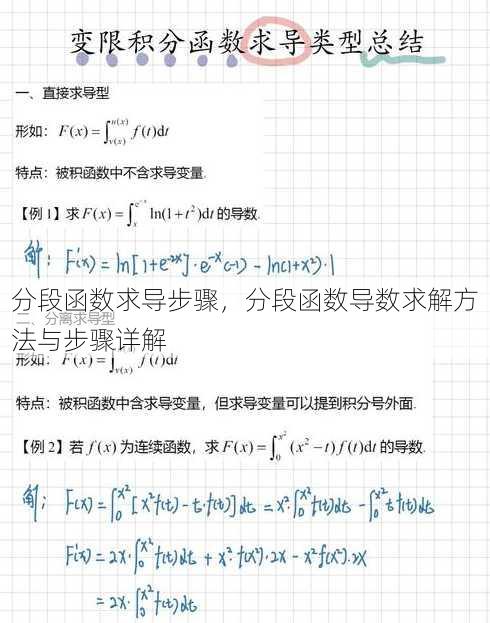 变限积分函数求导类型总结
一、直接求导型
形如：F(x)=∫_{v(x)}^{u(x)} f(t)dt
特点：被积函数中不含求导变量.
【例1】求F(x)=∫_x^{e^{-x}} ln(1+t²)dt的导数.
解：F'(x)=ln[1+e^{-2x}]·e^{-x}(-1)-ln(1+x²)·1
分段函数求导步骤，分段函数导数求解方
二、分离求导型
法与步骤详解
形如：F(x)=∫_{v(x)} f(t)dt
特点：被积函数中含求导变量，但求导变量可以提到积分号外面.
【例2】若f(x)为连续函数，求F(x)=∫_0^{x²}(x²-t)f(t)dt的导数.
解：F(x)=∫_0^{x²}[x²f(t)-t·f(t)]dt=x²·∫_0^{x²}f(t)dt-∫_0^{x²}t f(t)dt
F'(x)=2x·∫_0^{x²}f(t)dt+x²·f(x²)·2x-x²f(x²)·2x
=2x·∫_0^{x²}f(t)dt